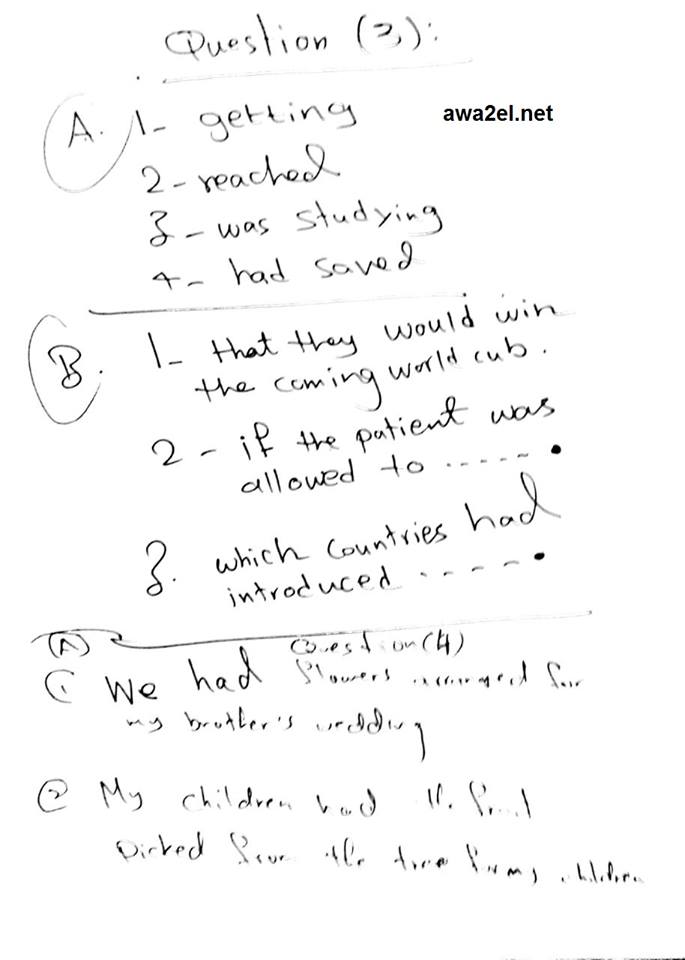 Question (3):
awa2el.net
A. 1- getting
2- reached
3- was studying
4- had saved
B. 1- that they would win
the coming world cub.
2- if the patient was
allowed to ------.
3. which countries had
introduced -----.
(A) Question (4)
① We had flowers arranged for
my brother's wedding
② My children had
picked from the tree children